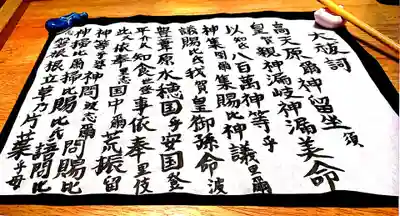 大祓詞
高天原爾神留坐須
皇賀親神漏岐神漏美命
以知氐八百萬神等乎
神集閇爾集賜比神議里爾
議賜比氐我賀皇御孫命波
豊葦原水穂国乎安国登
平介久知食世登事依奉里伎
此久依奉里志国中爾荒振留
神等乎婆神問婆志爾問賜比
神掃比爾掃賜比氐語問比
磐根根立草乃片葉乎母